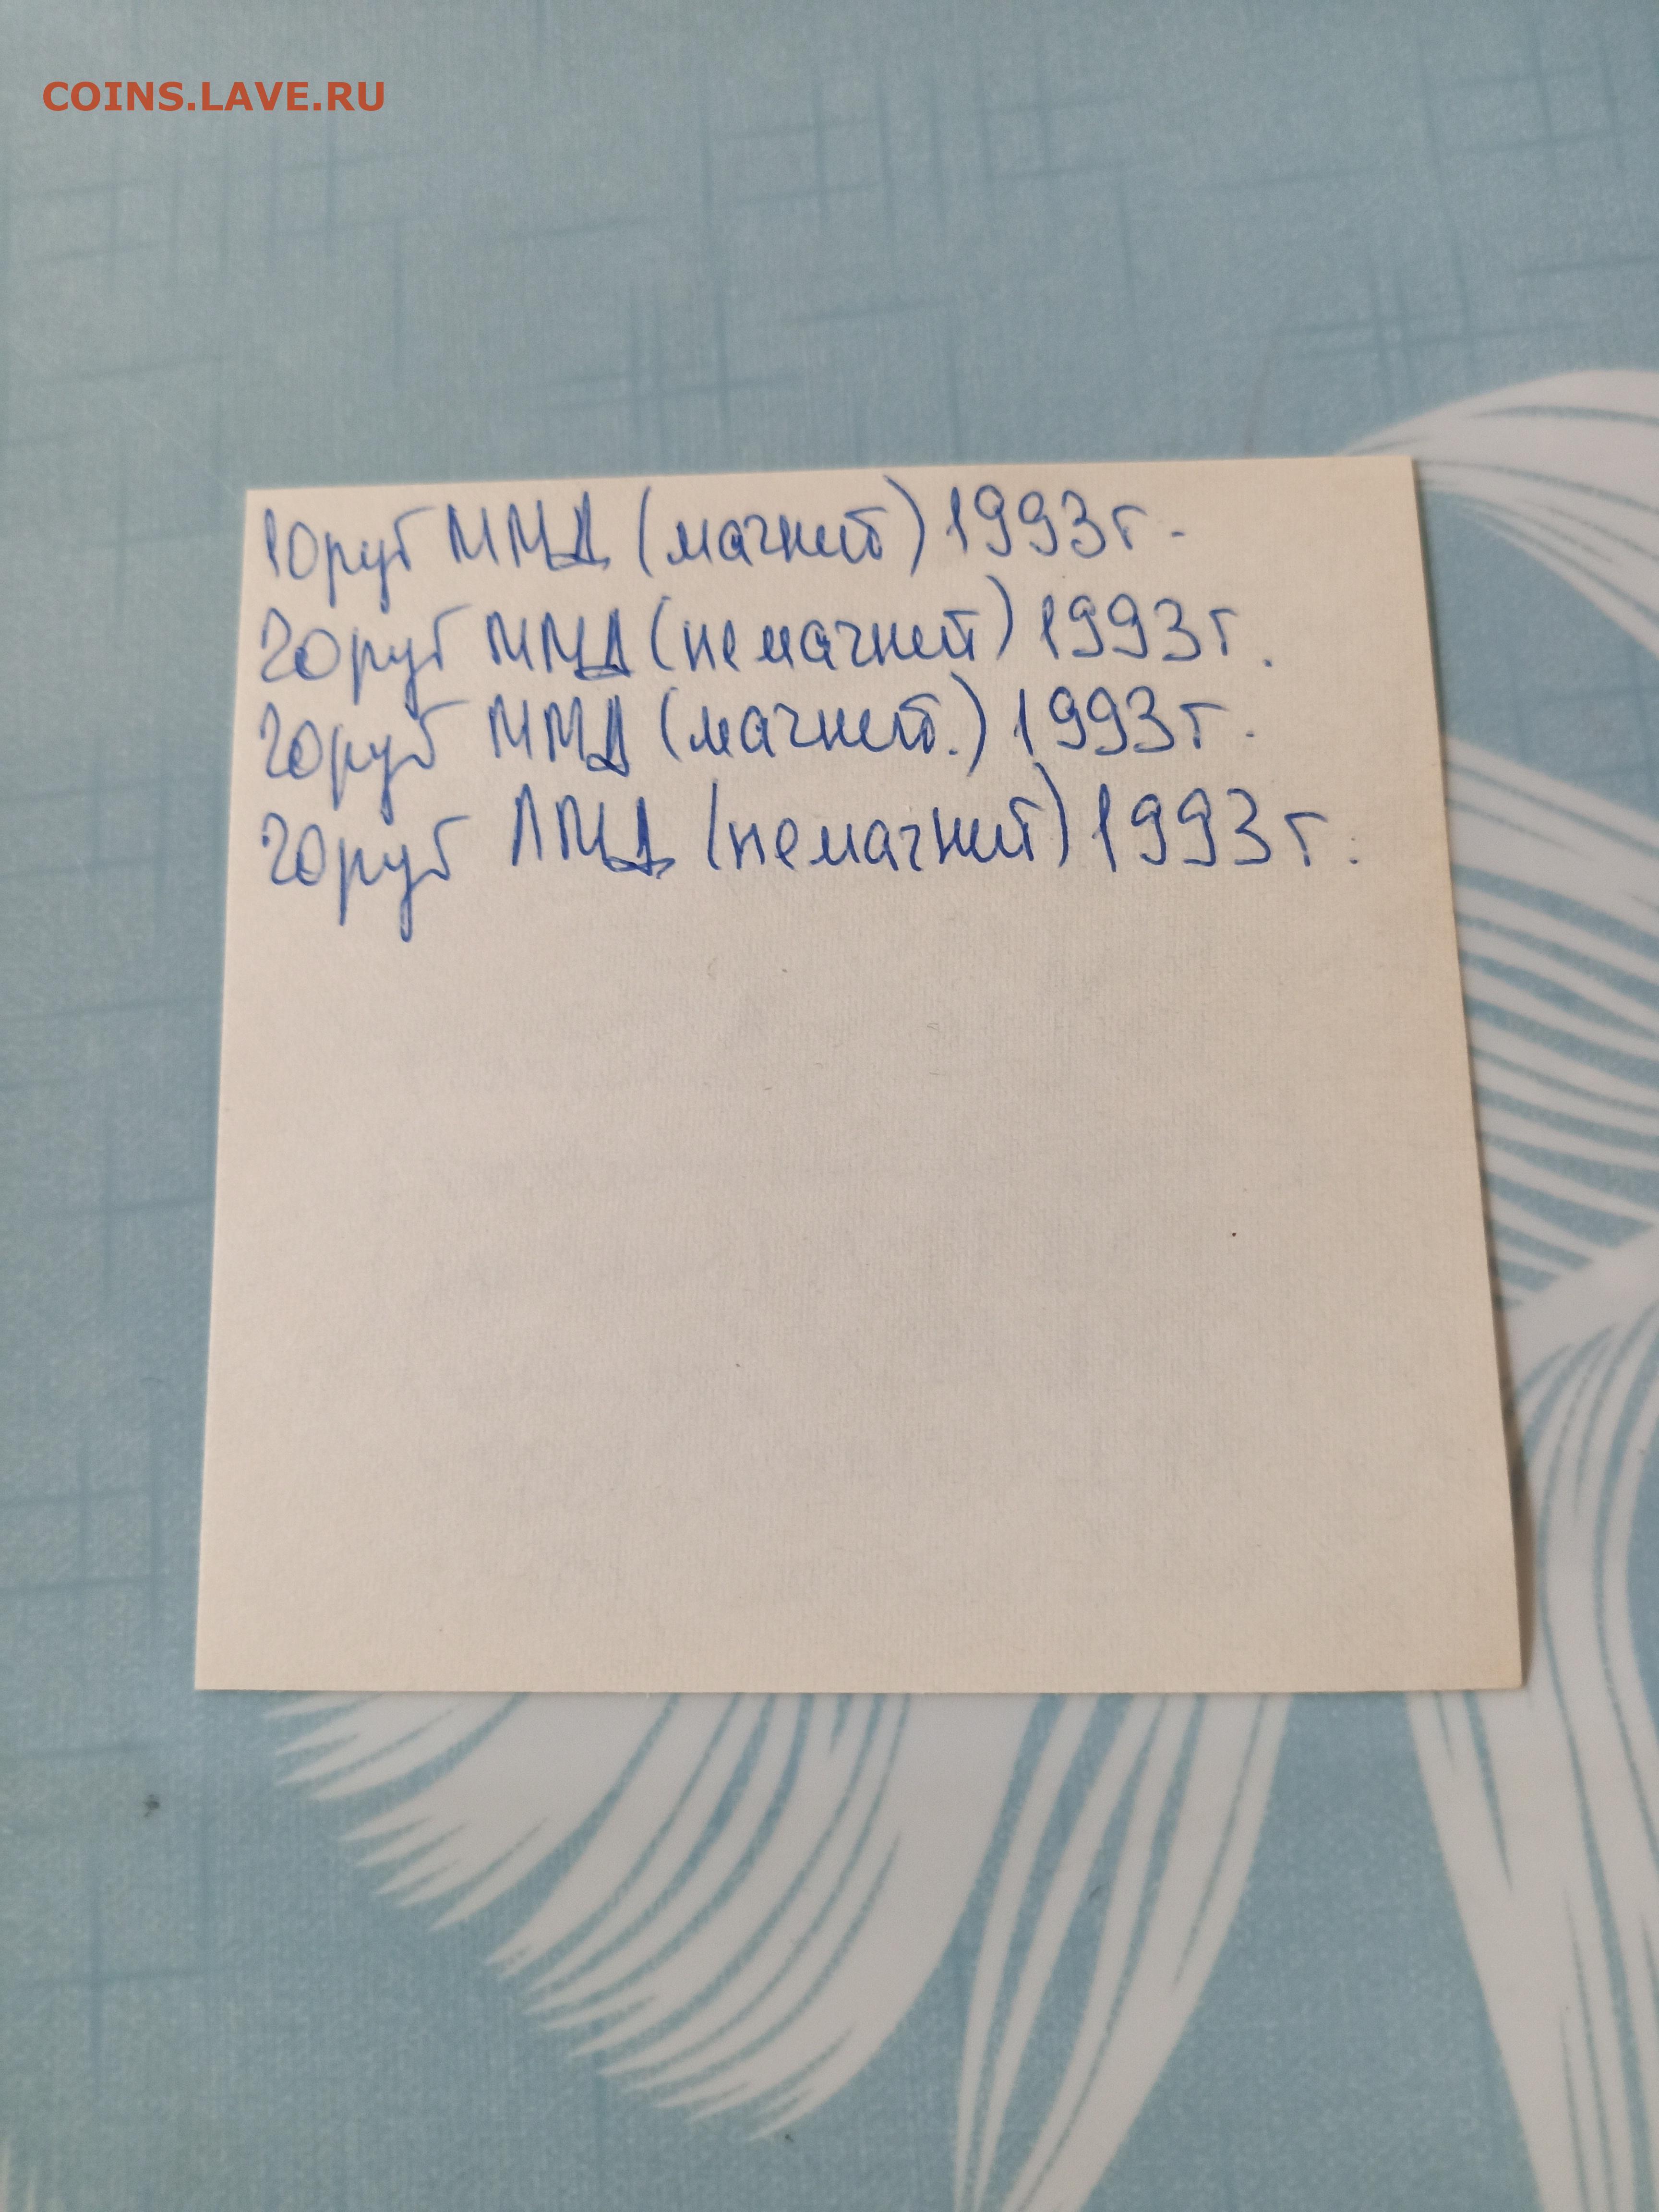 COINS.LAVE.RU
10руб ММД (магнит) 1993г.
20руб ММД (немагнит) 1993г.
20руб ММД (магнит.) 1993г.
20руб ЛМД (немагнит) 1993г.